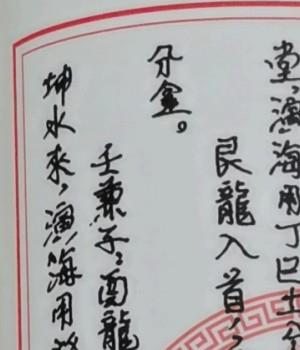 堂，演海用丁巳土分
艮龍入首，
分金。
壬兼子，酉龍
坤水來，演海用